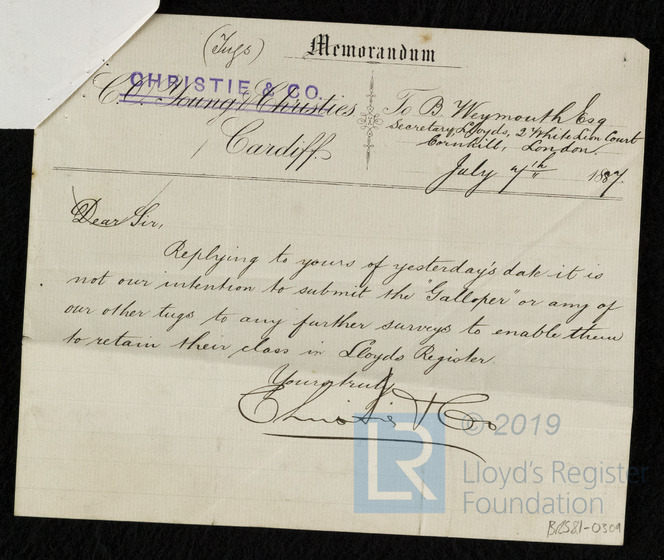 (Tugs)
Memorandum
CHRISTIE & CO.
C. O. Young & Christies
Cardiff.
To B. Weymouth Esq
Secretary, Lloyds, 2 White Lion Court
Cornhill, London.
July 7th 1887.
Dear Sir,
Replying to yours of yesterday's date it is
not our intention to submit the "Galloper" or any of
our other tugs to any further surveys to enable them
to retain their class in Lloyds Register.
Yours truly
Christie & Co
LR
© 2019
Lloyd's Register
Foundation